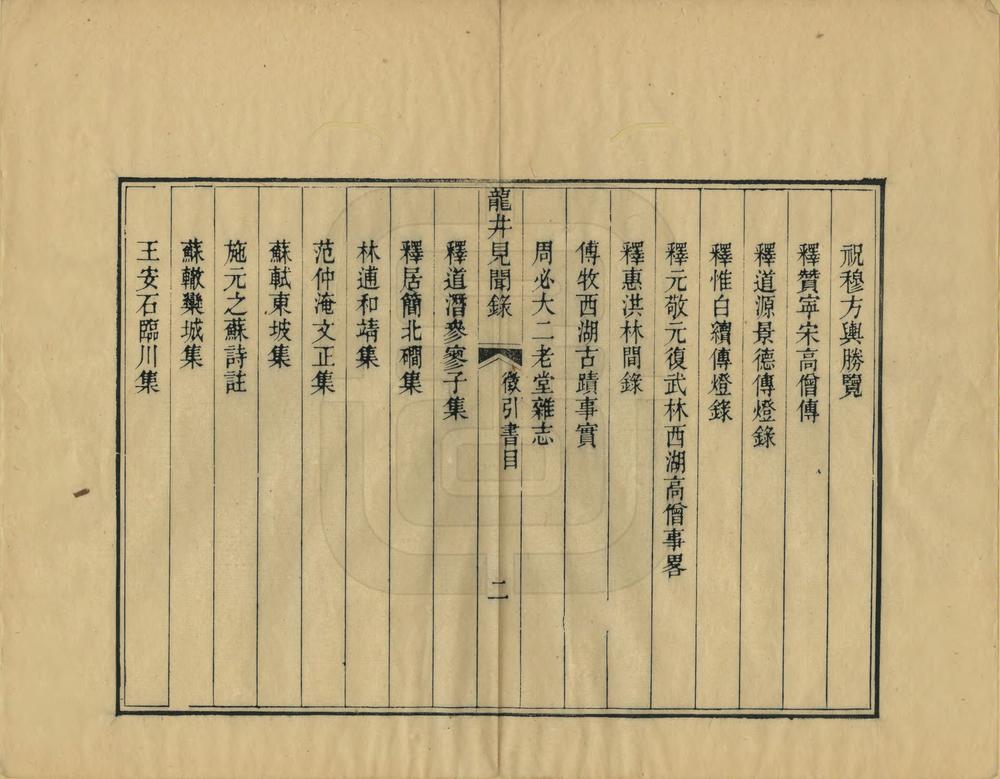 祝穆方輿勝覽
釋贊寧宋高僧傳
釋道源景德傳燈錄
釋惟白續傳燈錄
釋元敬元復武林西湖高僧事畧
釋惠洪林間錄
傅牧西湖古蹟事實
周必大二老堂雜志
龍井見聞錄
徵引書目
二
釋道潛參寥子集
釋居簡北磵集
林逋和靖集
范仲淹文正集
蘇軾東坡集
施元之蘇詩註
蘇轍欒城集
王安石臨川集